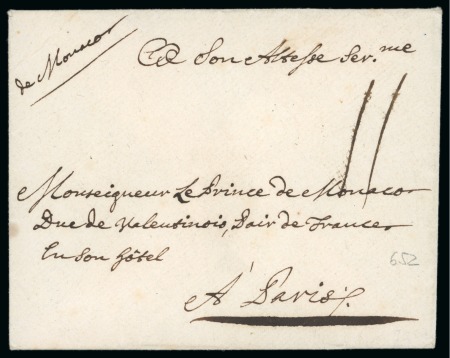 de Monaco
A Son Altesse Ser.me
11
Monseigneur Le Prince de Monaco
Duc de Valentinois, Pair de France
En Son hôtel
652
A Paris.